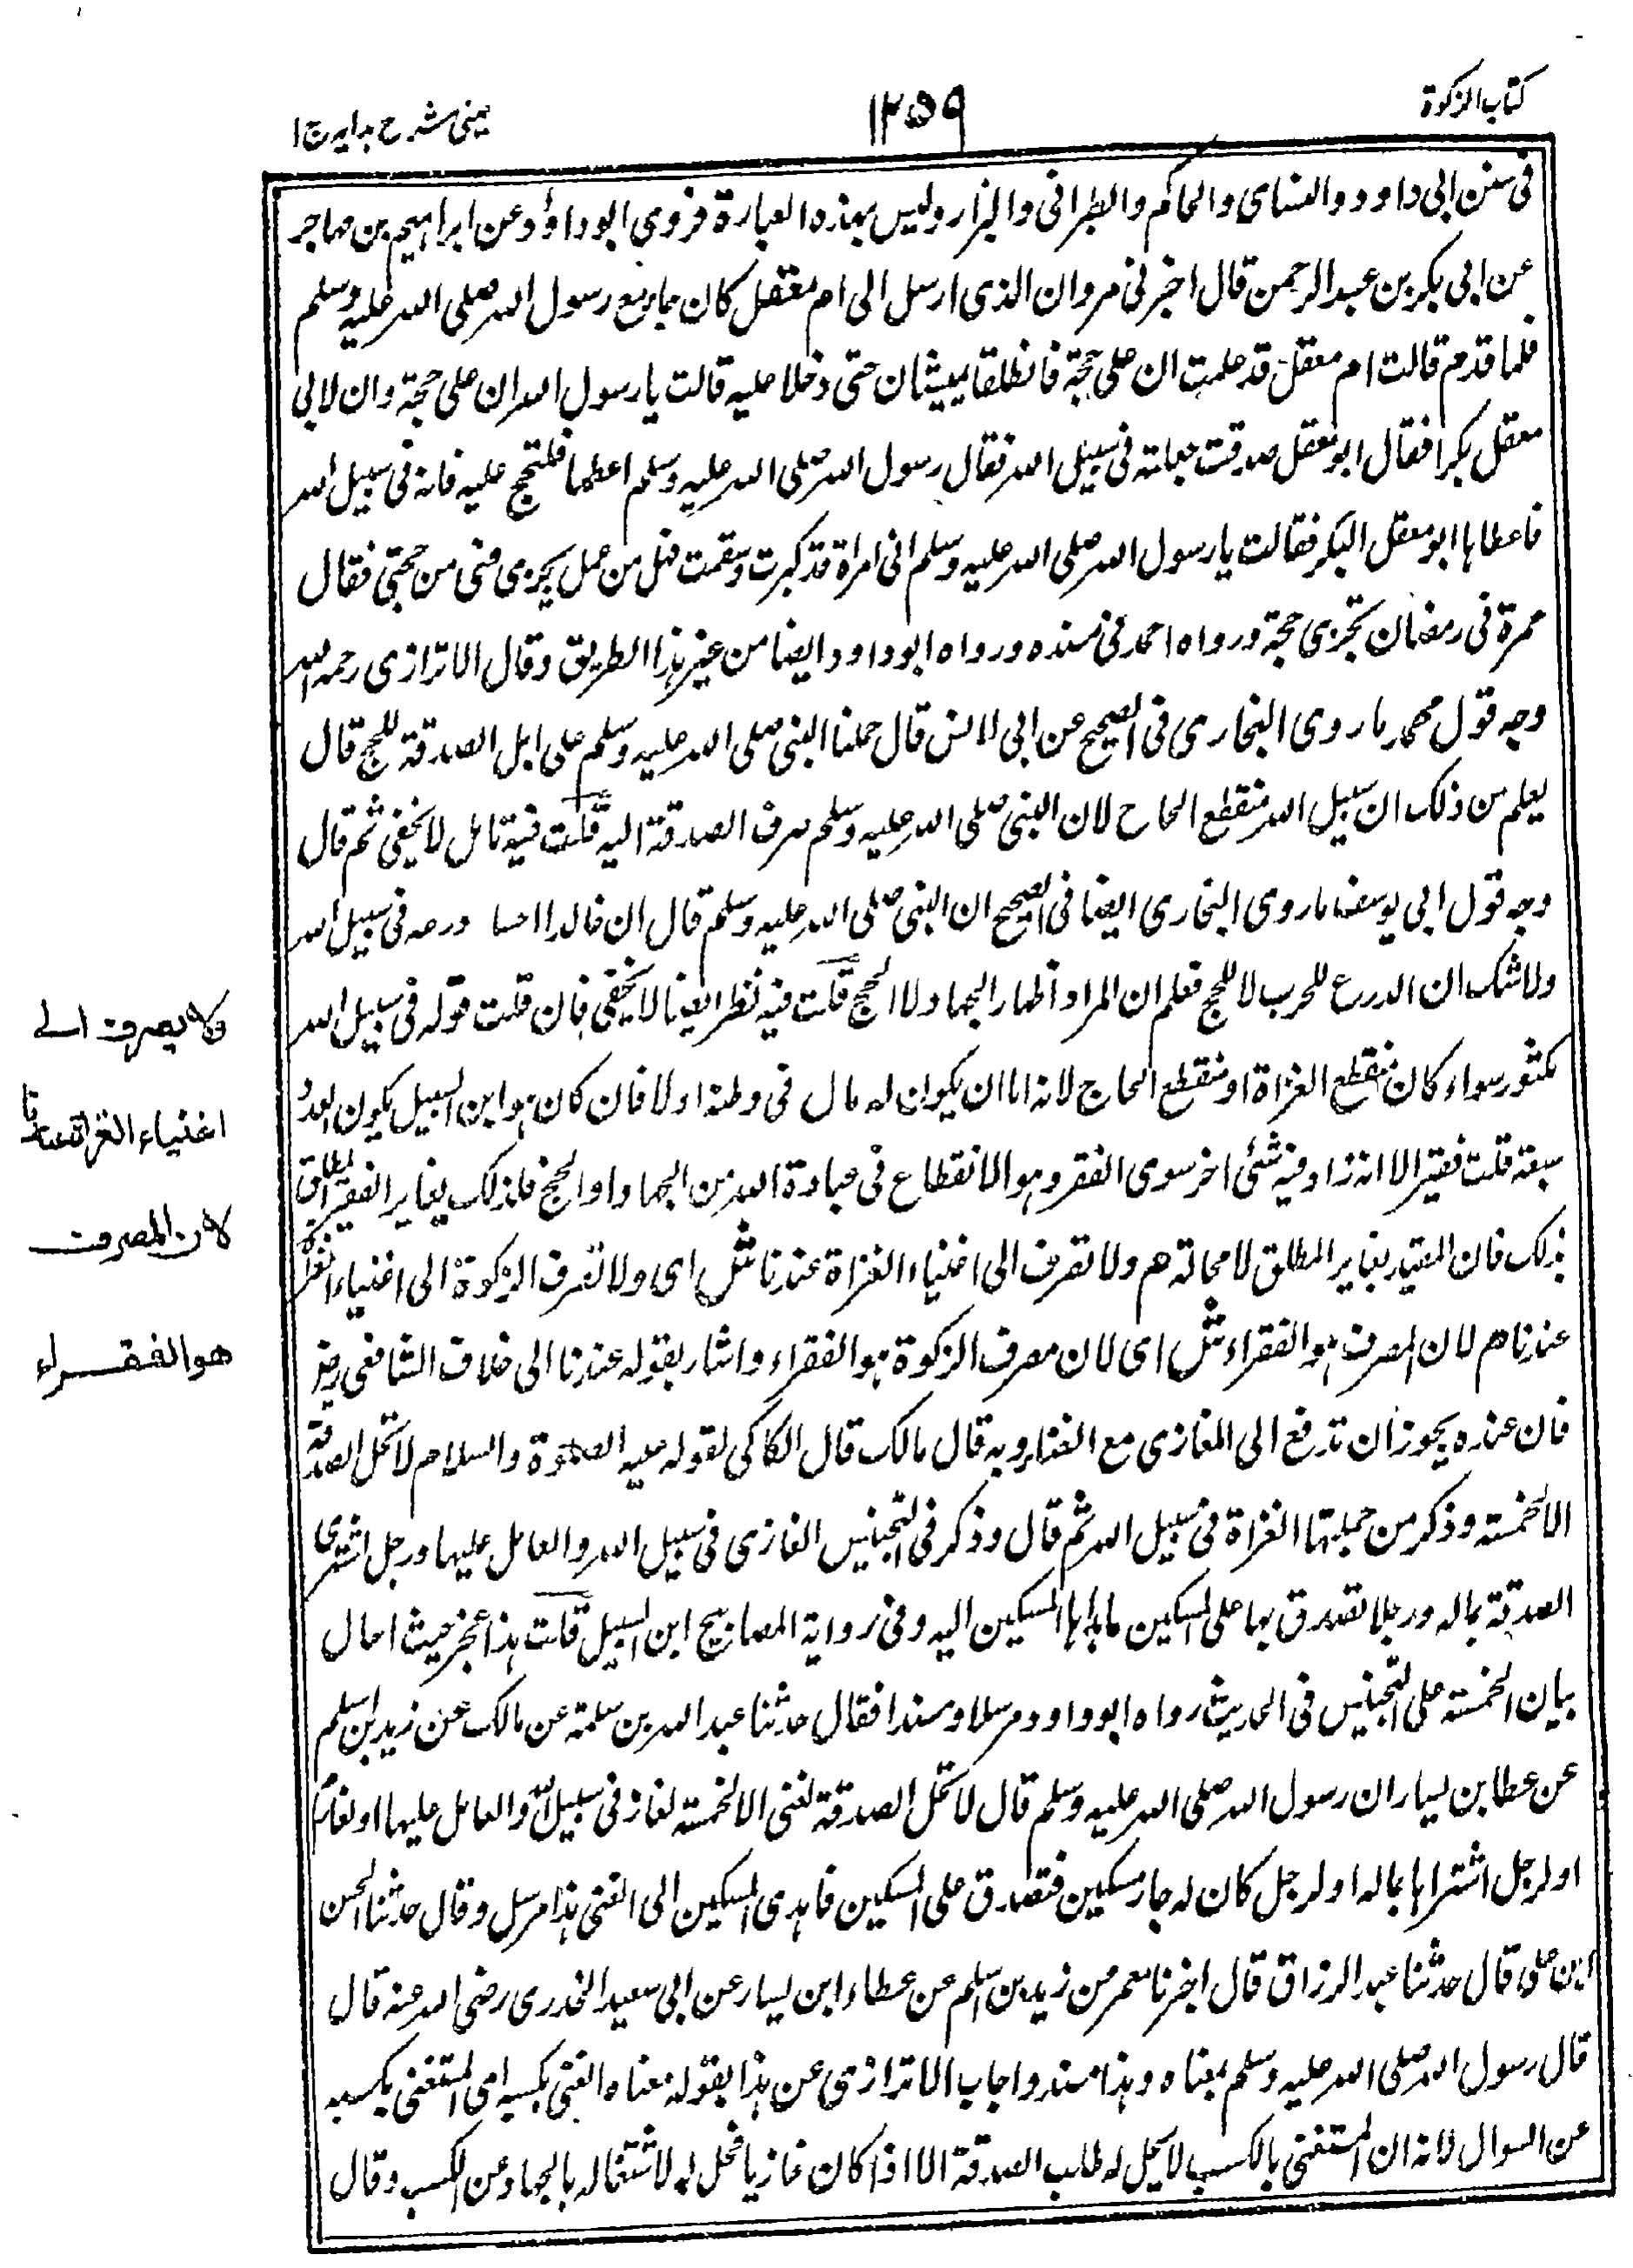 كتاب الزكوة
١٢٥٩
عینی شرح هدایه ج ١
فی سنن ابی داود والنسای والحاکم والطبرانی والبزار ولیس بهذه العبارة فروی ابو داؤد عن ابراهیم بن مهاجر
عن ابی بکر بن عبد الرحمن قال اخبرنی مروان الذی ارسل الی ام معقل کان مع رسول الله صلی الله علیه وسلم
فلما قدم قالت ام معقل قد علمت ان علی حجة فانطلقا یمشیان حتی دخلا علیه قالت یا رسول الله ان علی حجة وان لابی
معقل بکرا فقال ابو معقل صدقت جعلته فی سبیل الله فقال رسول الله صلی الله علیه وسلم اعطها فلتحج علیه فانه فی سبیل الله
فاعطاها ابو معقل البکر فقالت یا رسول الله صلی الله علیه وسلم انی امراة قد کبرت وسقمت فهل من عمل یجزی عنی من حجتی فقال
عمرة فی رمضان تجزی حجة ورواه احمد فی مسنده ورواه ابو داود ایضا من غیر هذا الطریق وقال الاترازی رحمه الله
وجه قول محمد ما روی البخاری فی الصحیح عن ابی لاس قال حملنا النبی صلی الله علیه وسلم علی ابل الصدقة للحج قال
یعلم من ذلک ان سبیل الله منقطع الحاج لان النبی صلی الله علیه وسلم صرف الصدقة الیه قلت فیه تامل لا یخفی ثم قال
وجه قول ابی یوسف ما روی البخاری ایضا فی الصحیح ان النبی صلی الله علیه وسلم قال ان خالدا احسا درعه فی سبیل الله
ولا شک ان الدرع للحرب لا للحج فعلم ان المراد اظهار الجهاد لا الحج قلت فیه نظر ایضا لا یخفی فان قلت قوله فی سبیل الله
مکثور سواء کان منقطع الغزاة او منقطع الحاج لانه اما ان یکون له مال فی وطنه اولا فان کان هو ابن السبیل یکون العدد
سبعة قلت فقیر الا انه زاد فیه شئ اخر سوی الفقر وهو الانقطاع فی عبادة الله من الجهاد او الحج فلذلک یغایر الفقیر المطلق
بذلک فان المقید یغایر المطلق لا محالة هم ولا تصرف الی اغنیاء الغزاة عندنا ش ای ولا تصرف الزکوة الی اغنیاء الغزاة
عندنا هم لان المصرف هو الفقراء ش ای لان مصرف الزکوة هو الفقراء واشار بقوله عندنا الی خلاف الشافعی رضـ
فان عنده یجوز ان تدفع الی الغازی مع الغناء وبه قال مالک قال الکاکی لقوله علیه الصلوة والسلام لا تحل الصدقة
الا لخمسة وذکر من جملتها الغزاة فی سبیل الله ثم قال وذکر فی التجنیس الغازی فی سبیل الله والعامل علیها ورجل اشتری
الصدقة بماله ورجلا تصدق بها علی المسکین فاهداها المسکین الیه وفی روایة المصابیح ابن السبیل قلت هذا عجز حیث احال
بیان الخمسة علی التجنیس فی الحدیث رواه ابو داود مرسلا ومسندا فقال حدثنا عبد الله بن سلمة عن مالک عن زید بن اسلم
عن عطا بن یسار ان رسول الله صلی الله علیه وسلم قال لا تحل الصدقة لغنی الا لخمسة لغاز فی سبیل الله والعامل علیها او لغارم
او لرجل اشتراها بماله او لرجل کان له جار مسکین فتصدق علی المسکین فاهدی المسکین الی الغنی هذا مرسل وقال حدثنا الحسن
ابن علی قال حدثنا عبد الرزاق قال اخبرنا معمر عن زید بن اسلم عن عطاء ابن یسار عن ابی سعید الخدری رضی الله عنه قال
قال رسول الله صلی الله علیه وسلم بمعناه وهذا مسند واجاب الاترازی عن هذا بقوله معناه الغنی بکسبه ای المستغنی بکسبه
عن السوال لانه ان المستغنی بالکسب لا یحل له طلب الصدقة الا اذا کان غازیا فحل له لاشتغاله بالجهاد عن الکسب وقال
ولا یصرف الی
اغنیاء الغزاة عندنا
لان المصرف
هو الفقراء